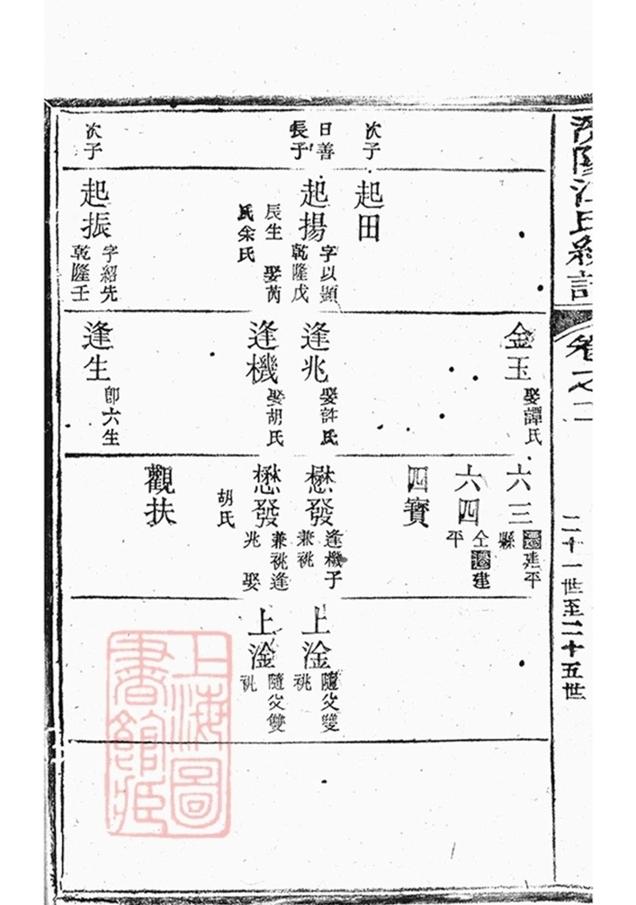 濟陽江氏統譜
卷之二
二十一世至二十五世
次子
起田
日善
長子
起揚
字以顯
乾隆戊
辰生 娶芮
氏余氏
次子
起振
字紹先
乾隆壬
金玉
娶譚氏
逢兆
娶許氏
逢機
娶胡氏
逢生
卽六生
六三
遷建平
縣
六四
仝遷建
平
四寶
懋發
逢機子
兼祧
懋發
兼祧逢
兆 娶
胡氏
觀扶
上淦
隨父雙
祧
上淦
隨父雙
祧
上海圖
書館藏